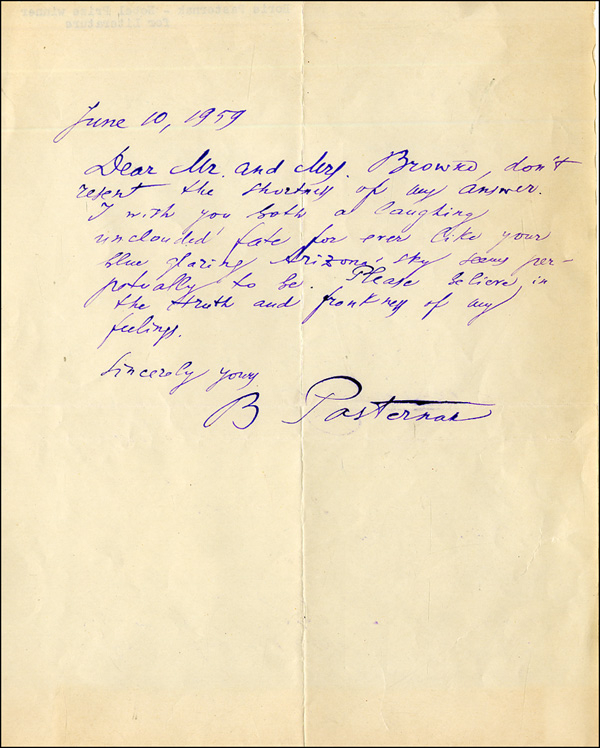 Boris Pasternak - Nobel Prize winner
for Literature
June 10, 1959
Dear Mr. and Mrs. Browne, don't
resent the shortness of my answer.
I wish you both a laughing
unclouded fate for ever like your
blue glaring Arizona sky seems per-
petually to be. Please believe in
the truth and frankness of my
feelings.
Sincerely yours
B Pasternak